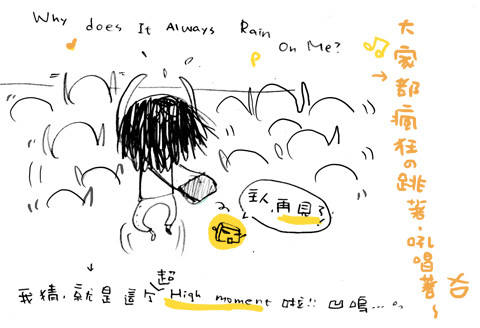 Why does It Always Rain On Me?
大家都瘋狂の跳著·吼唱著~
主人,再見了
超
我猜,就是這个 High moment 啦!! 凹嗚...。